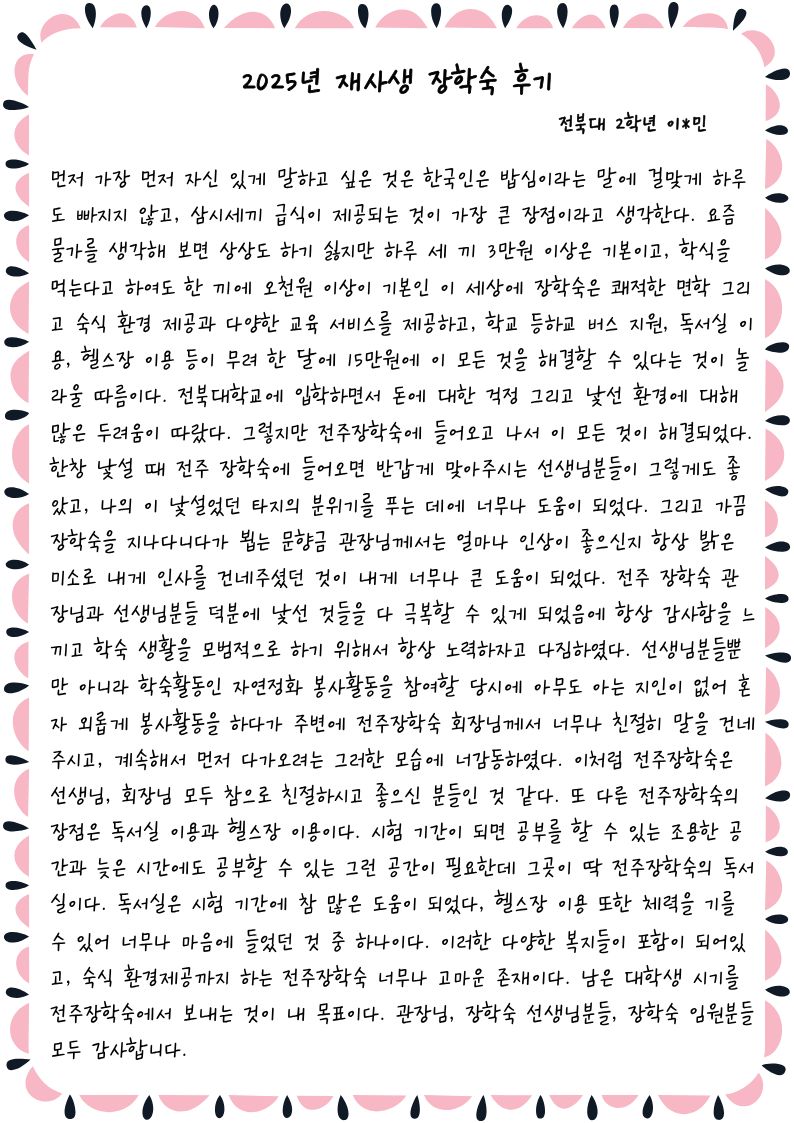 2025년 재사생 장학숙 후기
전북대 2학년 이*민
먼저 가장 먼저 자신 있게 말하고 싶은 것은 한국인은 밥심이라는 말에 걸맞게 하루
도 빠지지 않고, 삼시세끼 급식이 제공되는 것이 가장 큰 장점이라고 생각한다. 요즘
물가를 생각해 보면 상상도 하기 싫지만 하루 세 끼 3만원 이상은 기본이고, 학식을
먹는다고 하여도 한 끼에 오천원 이상이 기본인 이 세상에 장학숙은 쾌적한 면학 그리
고 숙식 환경 제공과 다양한 교육 서비스를 제공하고, 학교 등하교 버스 지원, 독서실 이
용, 헬스장 이용 등이 무려 한 달에 15만원에 이 모든 것을 해결할 수 있다는 것이 놀
라울 따름이다. 전북대학교에 입학하면서 돈에 대한 걱정 그리고 낯선 환경에 대해
많은 두려움이 따랐다. 그렇지만 전주장학숙에 들어오고 나서 이 모든 것이 해결되었다.
한창 낯설 때 전주 장학숙에 들어오면 반갑게 맞아주시는 선생님분들이 그렇게도 좋
았고, 나의 이 낯설었던 타지의 분위기를 푸는 데에 너무나 도움이 되었다. 그리고 가끔
장학숙을 지나다니다가 뵙는 문향금 관장님께서는 얼마나 인상이 좋으신지 항상 밝은
미소로 내게 인사를 건네주셨던 것이 내게 너무나 큰 도움이 되었다. 전주 장학숙 관
장님과 선생님분들 덕분에 낯선 것들을 다 극복할 수 있게 되었음에 항상 감사함을 느
끼고 학숙 생활을 모범적으로 하기 위해서 항상 노력하자고 다짐하였다. 선생님분들뿐
만 아니라 학숙활동인 자연정화 봉사활동을 참여할 당시에 아무도 아는 지인이 없어 혼
자 외롭게 봉사활동을 하다가 주변에 전주장학숙 회장님께서 너무나 친절히 말을 건네
주시고, 계속해서 먼저 다가오려는 그러한 모습에 너감동하였다. 이처럼 전주장학숙은
선생님, 회장님 모두 참으로 친절하시고 좋으신 분들인 것 같다. 또 다른 전주장학숙의
장점은 독서실 이용과 헬스장 이용이다. 시험 기간이 되면 공부를 할 수 있는 조용한 공
간과 늦은 시간에도 공부할 수 있는 그런 공간이 필요한데 그곳이 딱 전주장학숙의 독서
실이다. 독서실은 시험 기간에 참 많은 도움이 되었다, 헬스장 이용 또한 체력을 기를
수 있어 너무나 마음에 들었던 것 중 하나이다. 이러한 다양한 복지들이 포함이 되어있
고, 숙식 환경제공까지 하는 전주장학숙 너무나 고마운 존재이다. 남은 대학생 시기를
전주장학숙에서 보내는 것이 내 목표이다. 관장님, 장학숙 선생님분들, 장학숙 임원분들
모두 감사합니다.